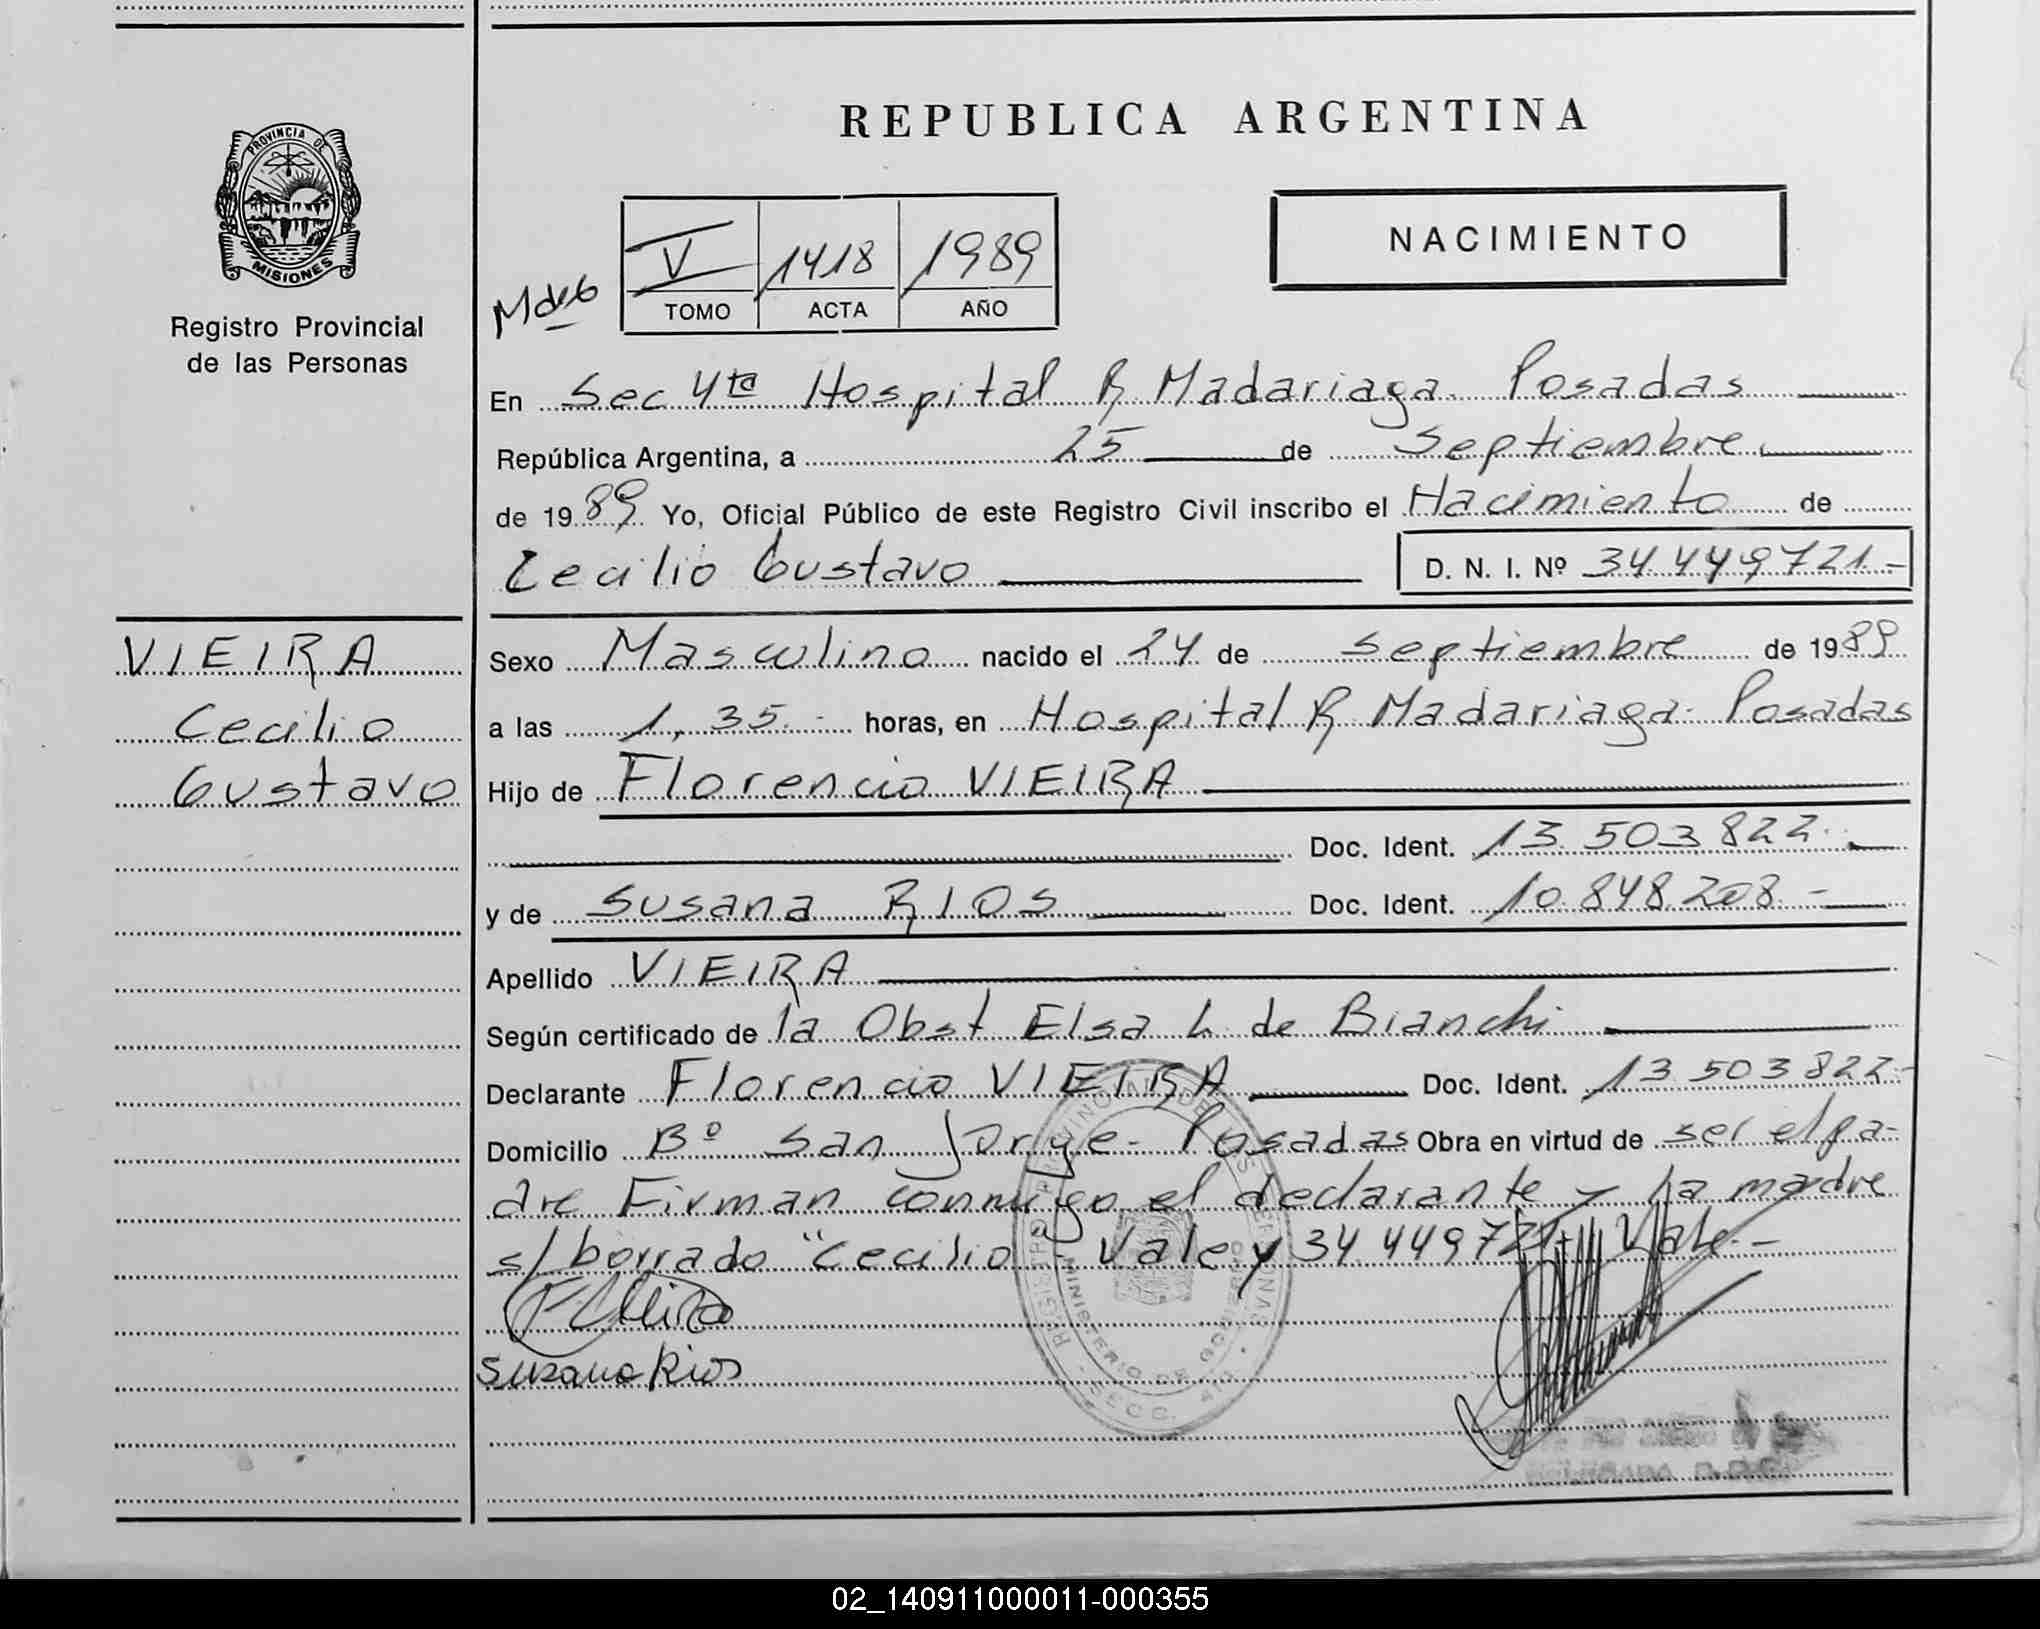 REPUBLICA ARGENTINA
PROVINCIA DE
MISIONES
Registro Provincial
de las Personas
NACIMIENTO
V 1418 1989
TOMO ACTA AÑO
En Sec 4ta Hospital R Madariaga Posadas
República Argentina, a 25 de Septiembre
de 1989 Yo, Oficial Público de este Registro Civil inscribo el Nacimiento de
Cecilio Gustavo D. N. I. Nº 34 449 721.-
VIEIRA
Cecilio
Gustavo
Sexo Masculino nacido el 24 de septiembre de 1989
a las 1,35.- horas, en Hospital R Madariaga- Posadas
Hijo de Florencio VIEIRA
Doc. Ident. 13 503 822.
y de Susana RIOS Doc. Ident. 10.848.208.-
Apellido VIEIRA
Según certificado de la Obst Elsa L. de Bianchi
Declarante Florencio VIEIRA Doc. Ident. 13 503 822-
Domicilio Bº San Jorge- Posadas Obra en virtud de ser el pa-
dre Firman conmigo el declarante y La madre
s/borrado "Cecilio"- Vale y 34 449 721- Vale.-
Susana Rios
REGISTRO PROVINCIAL DE LAS PERSONAS
MINISTERIO DE GOBIERNO
SECC. 4ta.
02_140911000011-000355